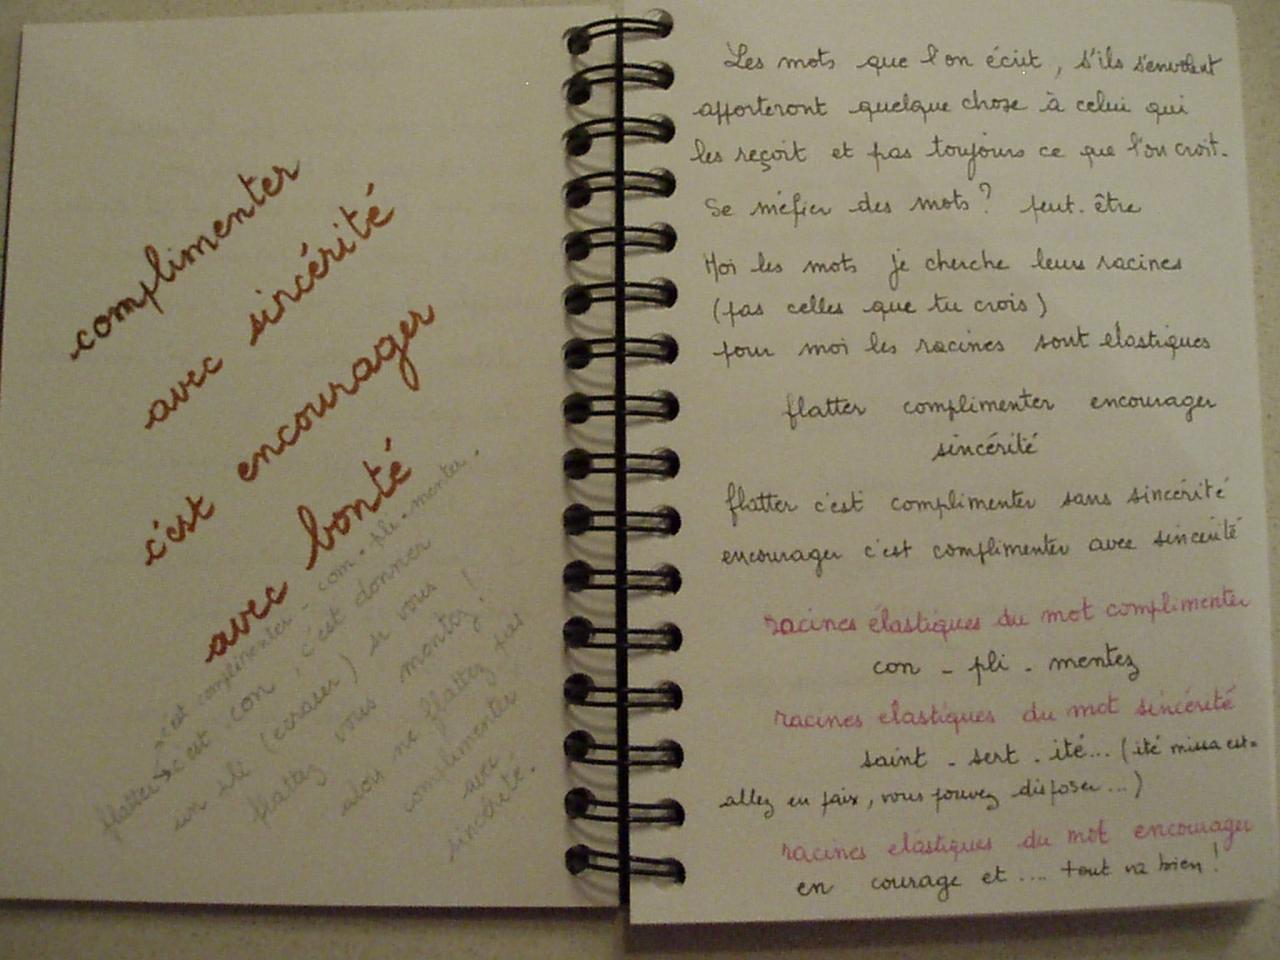 complimenter
avec sincérité
c'est encourager
avec bonté
c'est complimenter - com-pli-menter.
flatter c'est con, c'est donner
un pli (écraser) si vous
flattez vous montez !
alors ne flattez pas
complimenter
avec
sincérité.
Les mots que l'on écrit, s'ils s'envolent
apporteront quelque chose à celui qui
les reçoit et pas toujours ce que l'on croit.
Se méfier des mots ? peut-être
Moi les mots je cherche leurs racines
(pas celles que tu crois)
pour moi les racines sont elastiques
flatter complimenter encourager
sincérité
flatter c'est complimenter sans sincérité
encourager c'est complimenter avec sincérité
racines élastiques du mot complimenter
con - pli - mentez
racines elastiques du mot sincérité
saint - sert - ité... (ité missa est =
allez en paix, vous pouvez disposer...)
racines elastiques du mot encourager
en courage et .... tout va bien !